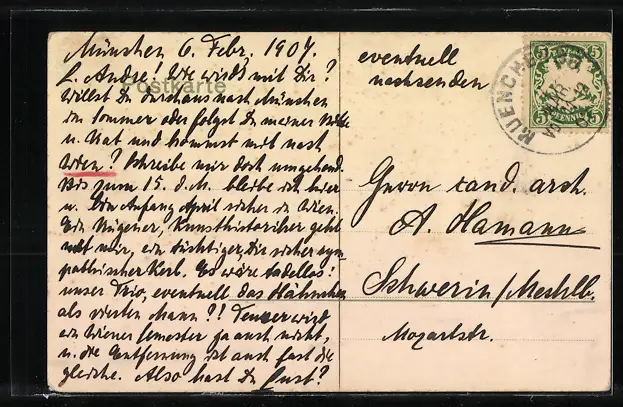 München 6. Febr. 1907.
L. Andre! Wie wird's mit Dir?
Postkarte
Willst Du durchaus nach München
im Sommer oder folgst Du meiner Bitte
u. Rat und kommst mit nach
Wien? Schreibe mir doch umgehend.
Bis zum 15. d. M. bleibe ich hier
u. bin Anfang April sicher in Wien.
Ein Rügener, Kunsthistoriker geht
mit mir, ein tüchtiger, Dir sicher sym-
pathischer Kerl. Es wäre tadellos!
unser Trio, eventuell das Hähnchen
als vierten Mann?! Teurer wird
ein Wiener Semester ja auch nicht,
u. die Entfernung ist auch fast die
gleiche. Also hast Du Lust?
eventuell
nachsenden
5 BAYERN 5
5 PFENNIG 5
MUENCHEN
Herrn cand. arch.
A. Hamann
Schwerin/Mecklb.
Mozartstr.